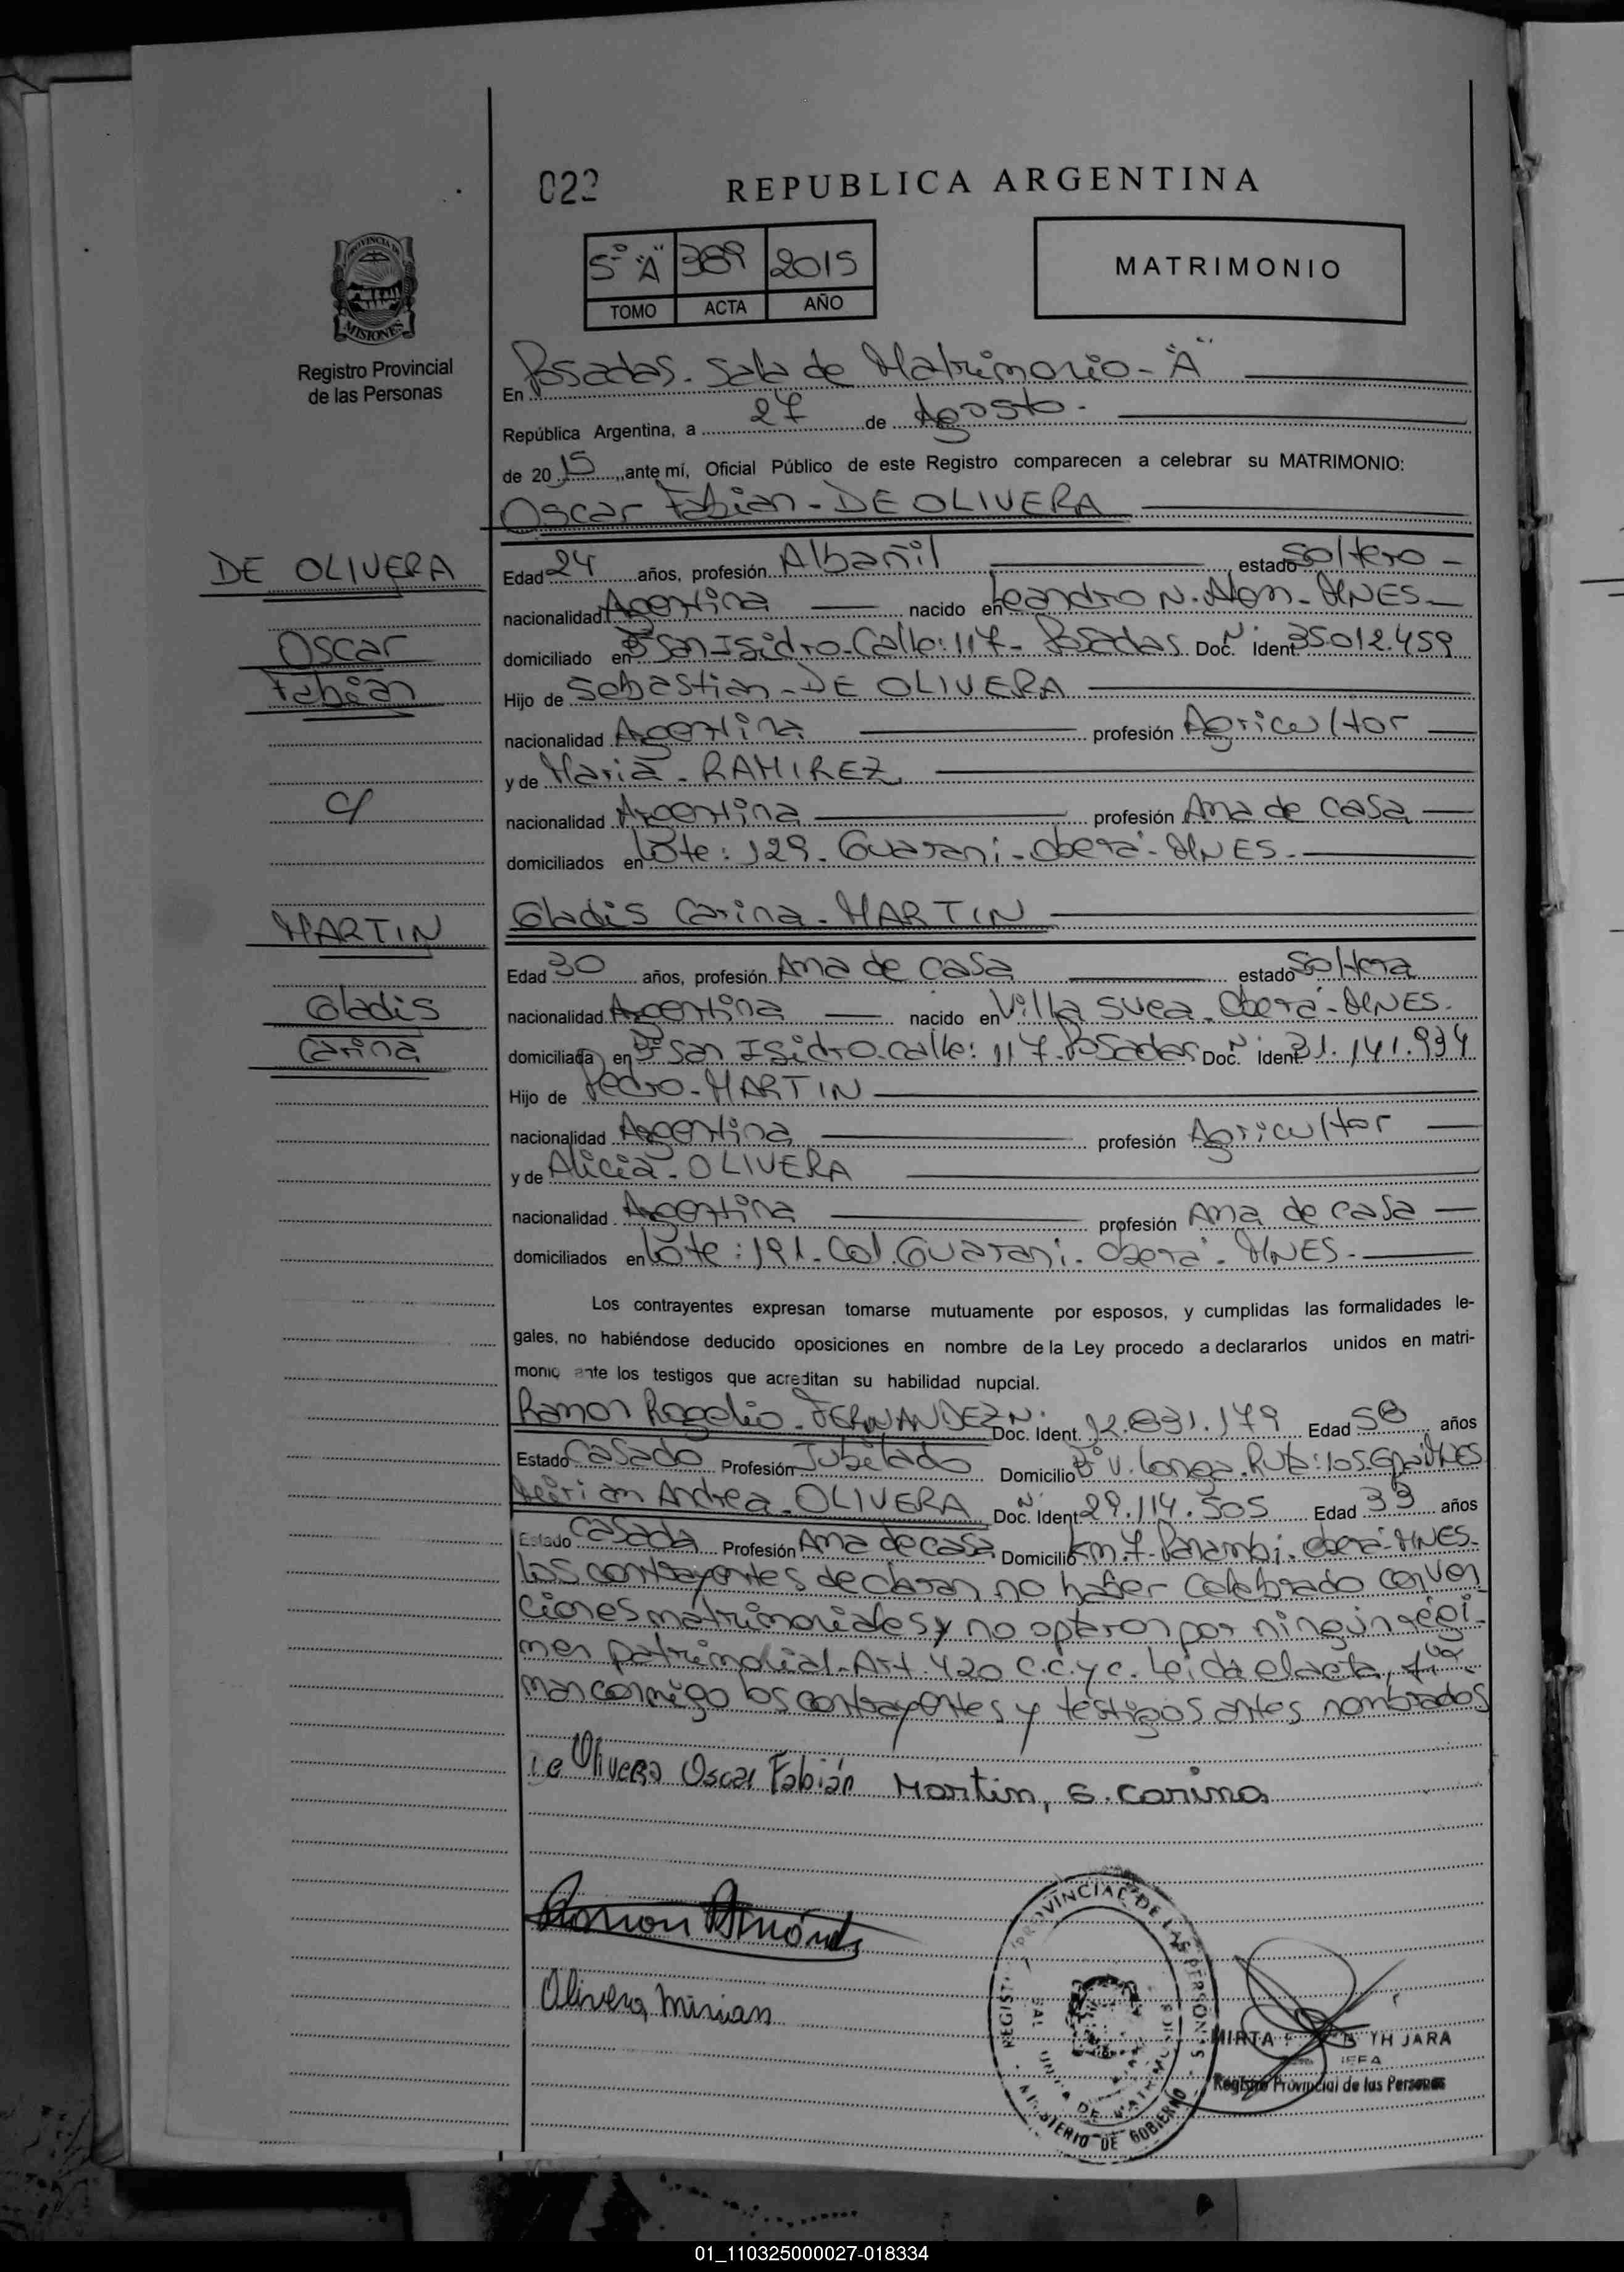 022
REPUBLICA ARGENTINA
5° "A" 389 2015
TOMO ACTA AÑO
MATRIMONIO
PROVINCIA DE
MISIONES
Registro Provincial
de las Personas
En Posadas. Sala de Matrimonio - "A"
República Argentina, a 27 de Agosto.
de 2015, ante mí, Oficial Público de este Registro comparecen a celebrar su MATRIMONIO:
Oscar Fabian - DE OLIVERA
DE OLIVERA
Oscar
Fabián
c/
MARTIN
Gladis
Carina
Edad 24 años, profesión Albañil estado Soltero -
nacionalidad Argentina nacido en Leandro N. Alem - MNES -
domiciliado en B° San Isidro - Calle: 117 - Posadas. Doc. N° Ident. 35.012.459
Hijo de Sebastian - DE OLIVERA
nacionalidad Argentina profesión Agricultor
y de Maria - RAMIREZ
nacionalidad Argentina profesión Ama de casa
domiciliados en Lote: 129 - Guarani - Oberá - MNES -
Gladis Carina - MARTIN
Edad 30 años, profesión Ama de casa estado Soltera
nacionalidad Argentina nacido en Villa Svea - Oberá - MNES.
domiciliada en B° San Isidro - calle: 117 - Posadas Doc. N° Ident. 31.141.934
Hijo de Pedro - MARTIN
nacionalidad Argentina profesión Agricultor
y de Alicia - OLIVERA
nacionalidad Argentina profesión Ama de casa
domiciliados en Lote: 191 - Col. Guarani - Oberá - MNES -
Los contrayentes expresan tomarse mutuamente por esposos, y cumplidas las formalidades le-
gales, no habiéndose deducido oposiciones en nombre de la Ley procedo a declararlos unidos en matri-
monio ante los testigos que acreditan su habilidad nupcial.
Ramon Rogelio - FERNANDEZ Doc. N° Ident. 12.831.179 Edad 58 años
Estado Casado Profesión Jubilado Domicilio B° V. Longa. Ruta: 105. MNES
Mirian Andrea - OLIVERA Doc. N° Ident. 29.114.505 Edad 33 años
Estado Casada Profesión Ama de casa Domicilio Km. 7 - Panambi - Oberá - MNES -
Los contrayentes declaran no haber celebrado conven
ciones matrimoniales y no optaron por ningún régi-
men patrimonial - Art. 420 C.C. y C. Leída el acta, fir-
man conmigo los contrayentes y testigos antes nombrados
De Olivera Oscar Fabián Martin, G. Carina
Olivera, Mirian
REGISTRO PROVINCIAL DE LAS PERSONAS
MINISTERIO DE GOBIERNO
MIRTA YH JARA
JEFA
Registro Provincial de las Personas
01_110325000027-018334